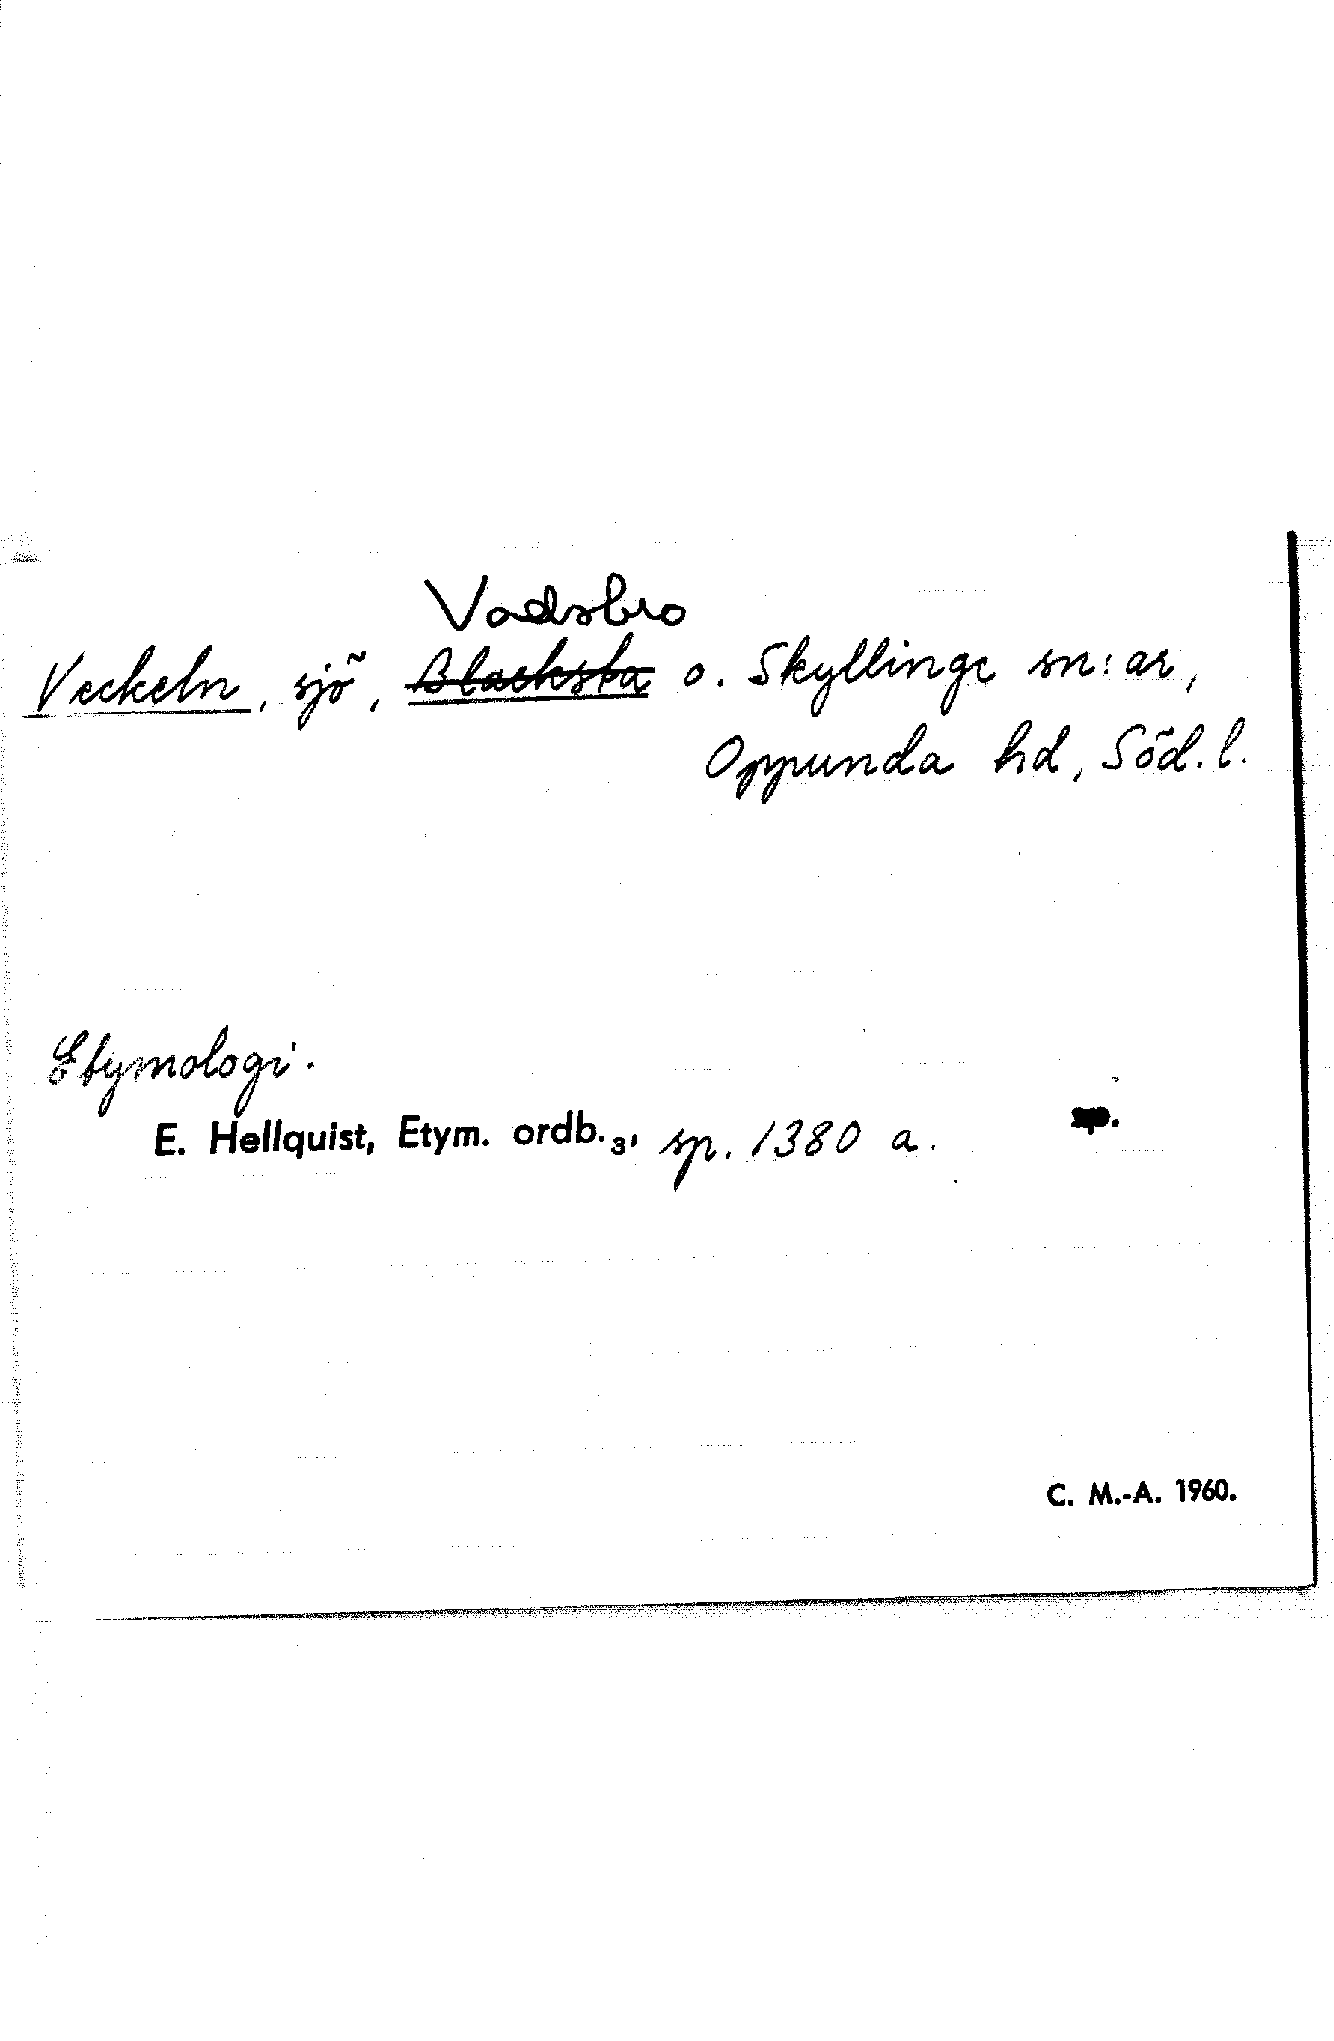 Vadsbro
Veckeln, sjö, Blacksta o. Skyllinge sn:ar,
Oppunda hd, Söd. l.
Etymologi.
E. Hellquist, Etym. ordb.3, sp. 1380 a. sp.
C. M.-A. 1960.